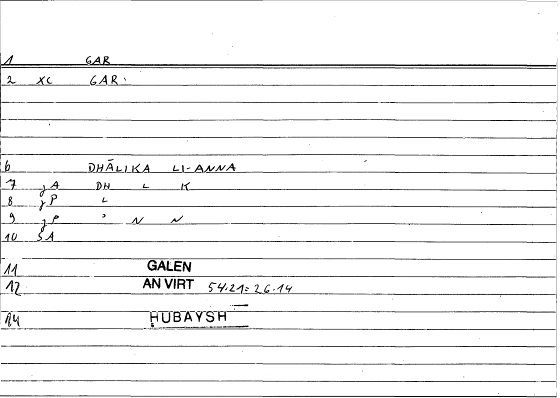 1 GAR
2 XC GAR
6 DHĀLIKA LI-ANNA
7 jA DH L K
8 jP L
9 jP ʾ N N
10 SA
11 GALEN
12 AN VIRT 54.21=26.14
14 ḤUBAYSH